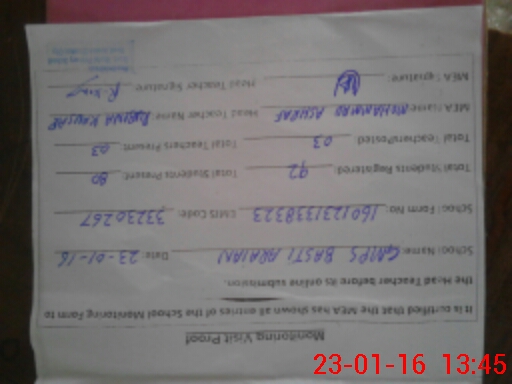 Monitoring Visit Proof
It is certified that the MEA has shown all entries of the School Monitoring Form to
the Head Teacher before its online submission.
School Name: GMPS BASTI ARAIAN Date: 23-01-16
School Form No: 1601231338323 EMIS Code: 33230267
Total Students Registered: 92 Total Students Present: 80
Total Teachers Posted: 03 Total Teachers Present: 03
MEA Name: MUHAMMAD ASHRAF Head Teacher Name: RUBINA KAUSAR
MEA Signature: Head Teacher Signature:
23-01-16 13:45